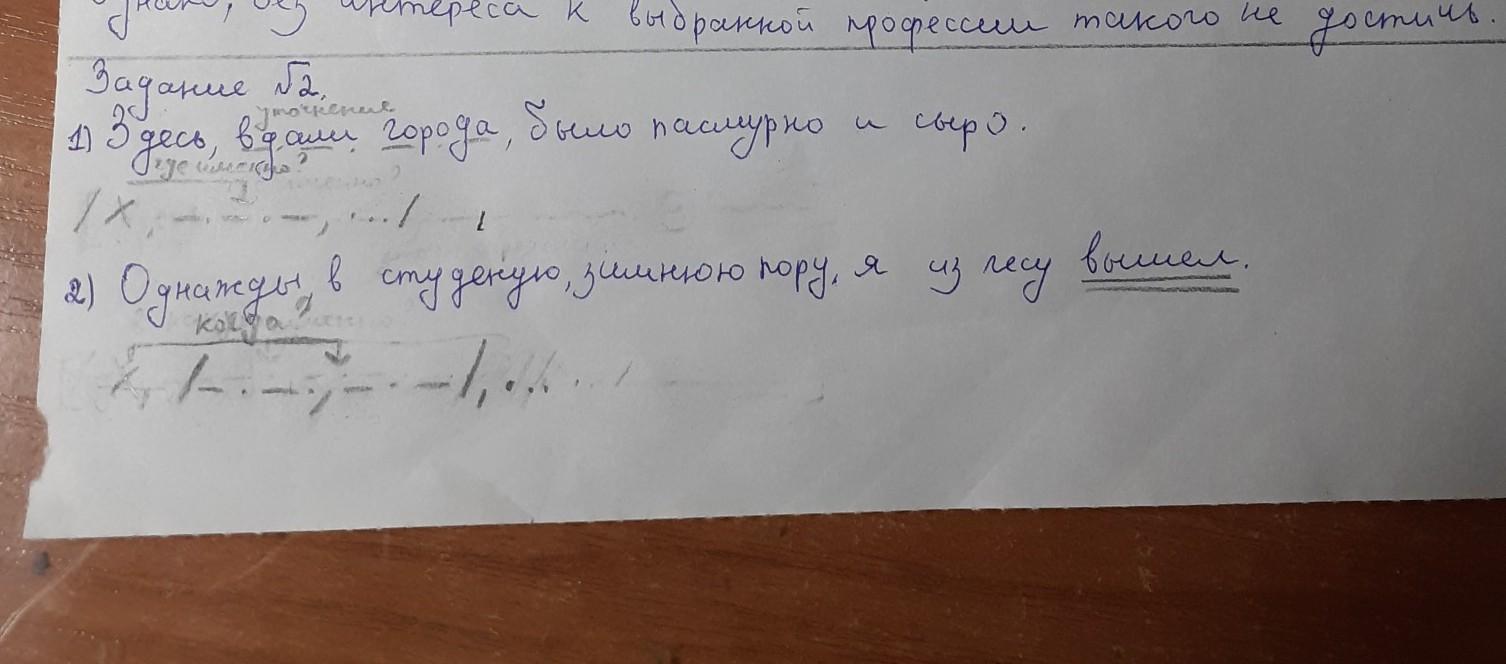 Однако, без интереса к выбранной профессии такого не достичь.
Задание №2.
уточнение
1) Здесь, вдали города, было пасмурно и сыро.
где именно?
/ X, —.—.—, .../
2) Однажды, в студеную, зимнюю пору, я из лесу вышел.
когда?
X, /—.—., —.—/, ...